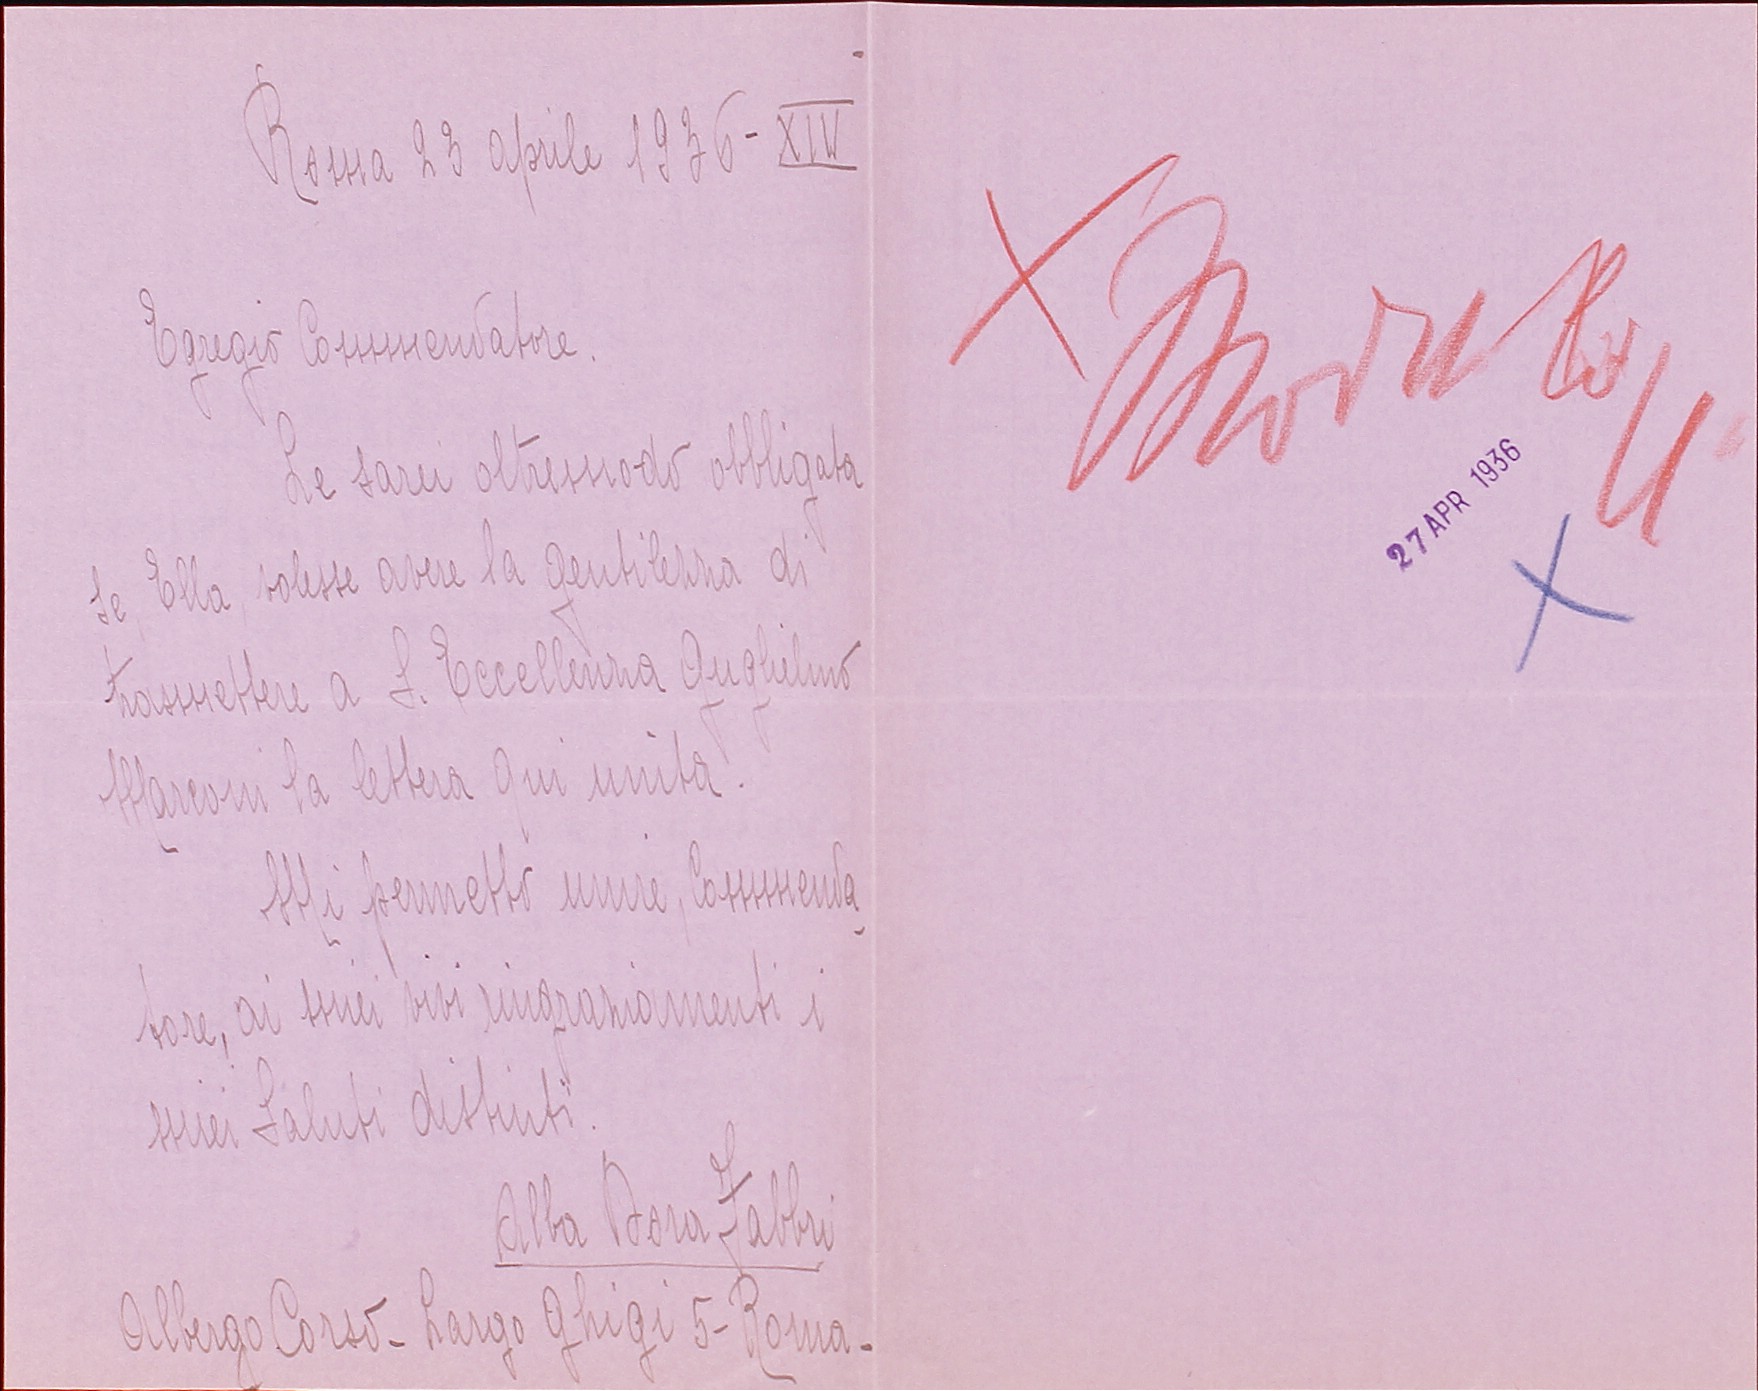 Roma 23 aprile 1936-XIV
Egregio Commendatore.
Le sarei oltremodo obbligata
se, Ella, volesse avere la gentilezza di
trasmettere a S. Eccellenza Guglielmo
Marconi la lettera qui unita.
Mi permetto unire, Commenda-
tore, ai miei vivi ringraziamenti i
miei Saluti distinti.
Alba Dora Fabbri
Albergo Corso - Largo Ghigi 5 - Roma -
27 APR 1936